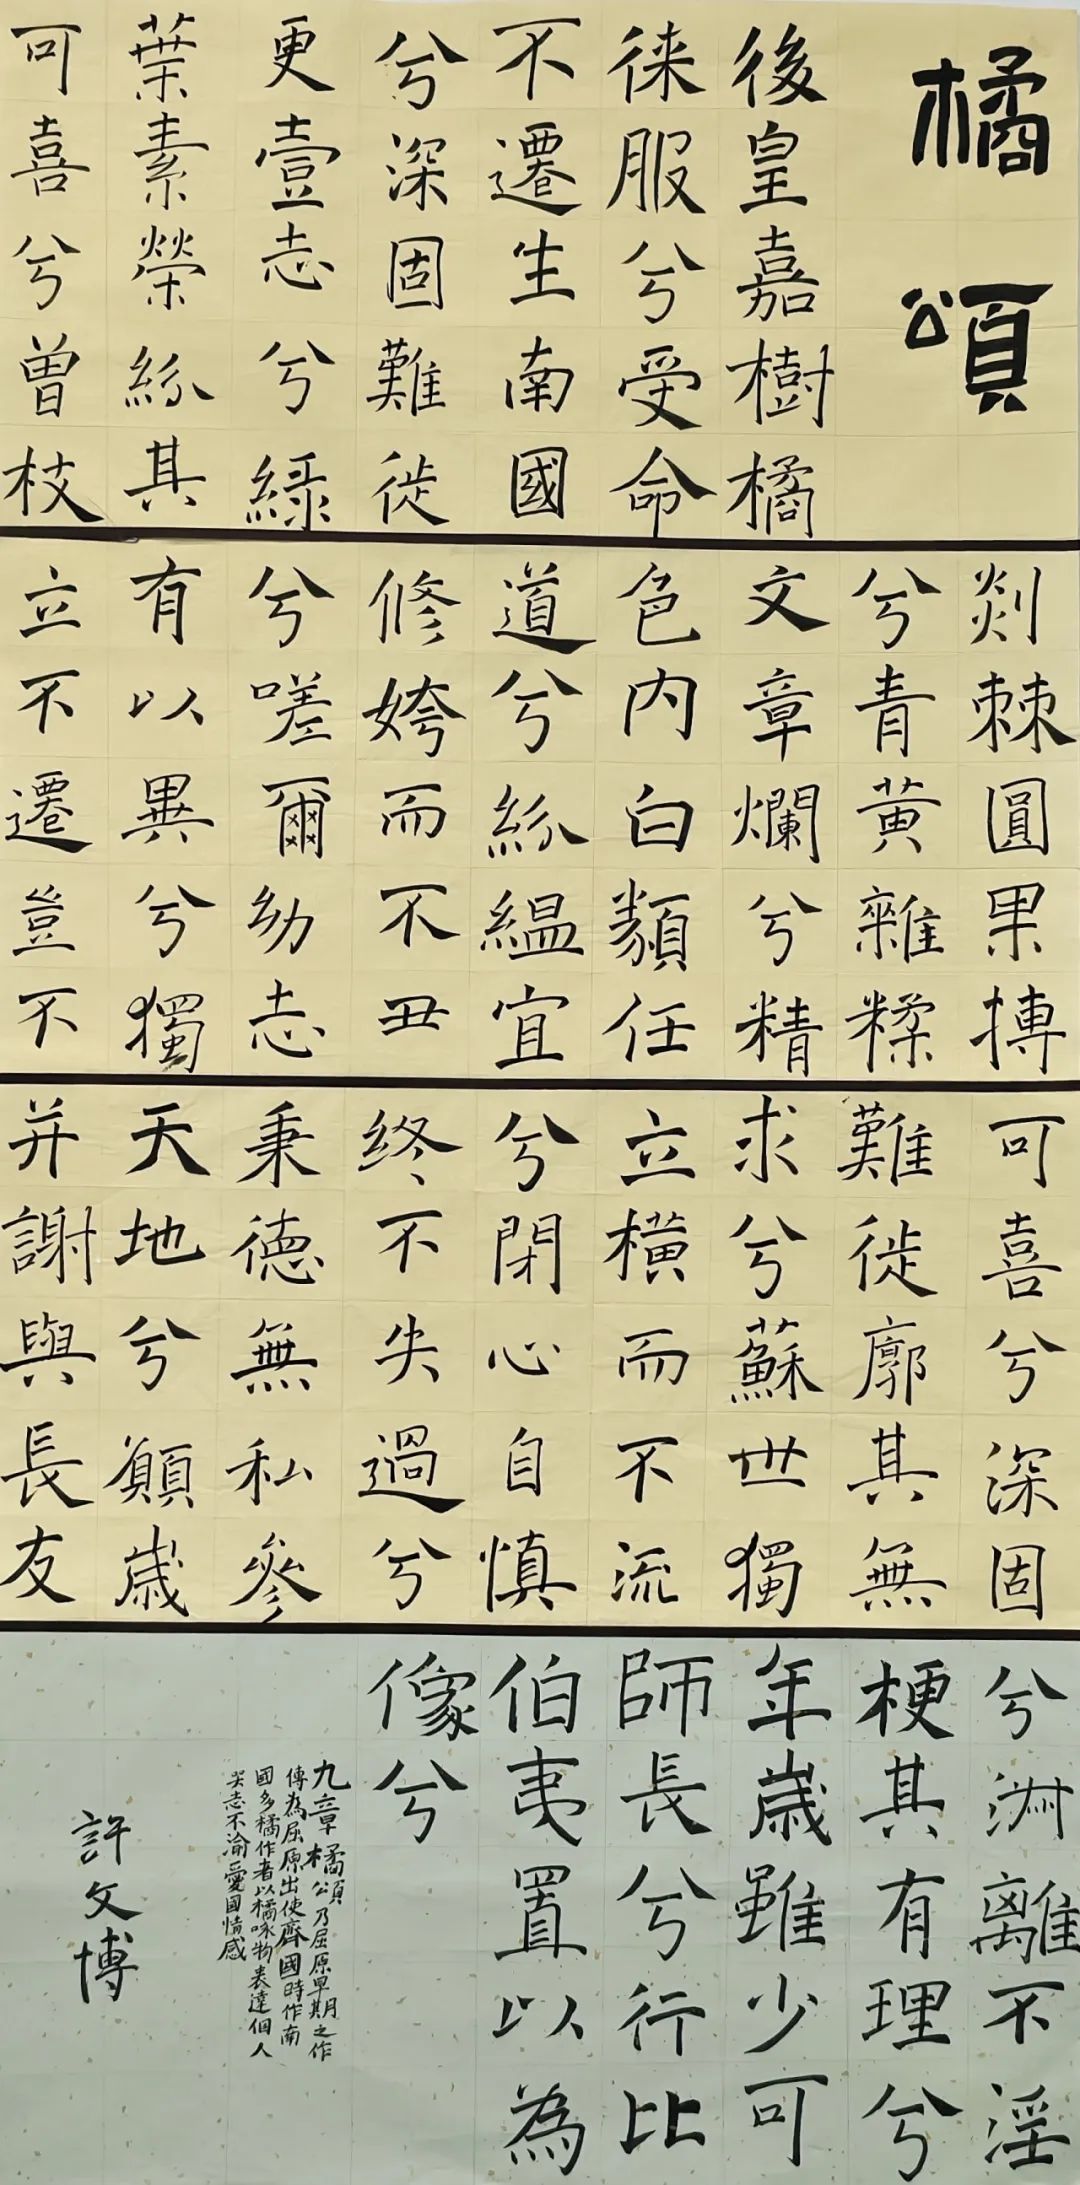 橘頌
後皇嘉樹橘
徠服兮受命
不遷生南國
兮深固難徙
更壹志兮綠
葉素榮紛其
可喜兮曾枝
剡棘圓果摶
兮青黃雜糅
文章爛兮精
色內白類任
道兮紛縕宜
修姱而不丑
兮嗟爾幼志
有以異兮獨
立不遷豈不
可喜兮深固
難徙廓其無
求兮蘇世獨
立橫而不流
兮閉心自慎
終不失過兮
秉德無私參
天地兮願歲
并謝與長友
兮淋離不淫
梗其有理兮
年歲雖少可
師長兮行比
伯夷置以為
像兮
九章橘頌乃屈原早期之作
傳為屈原出使齊國時作南
國多橘作者以橘咏物表達個人
矢志不渝愛國情感
許文博